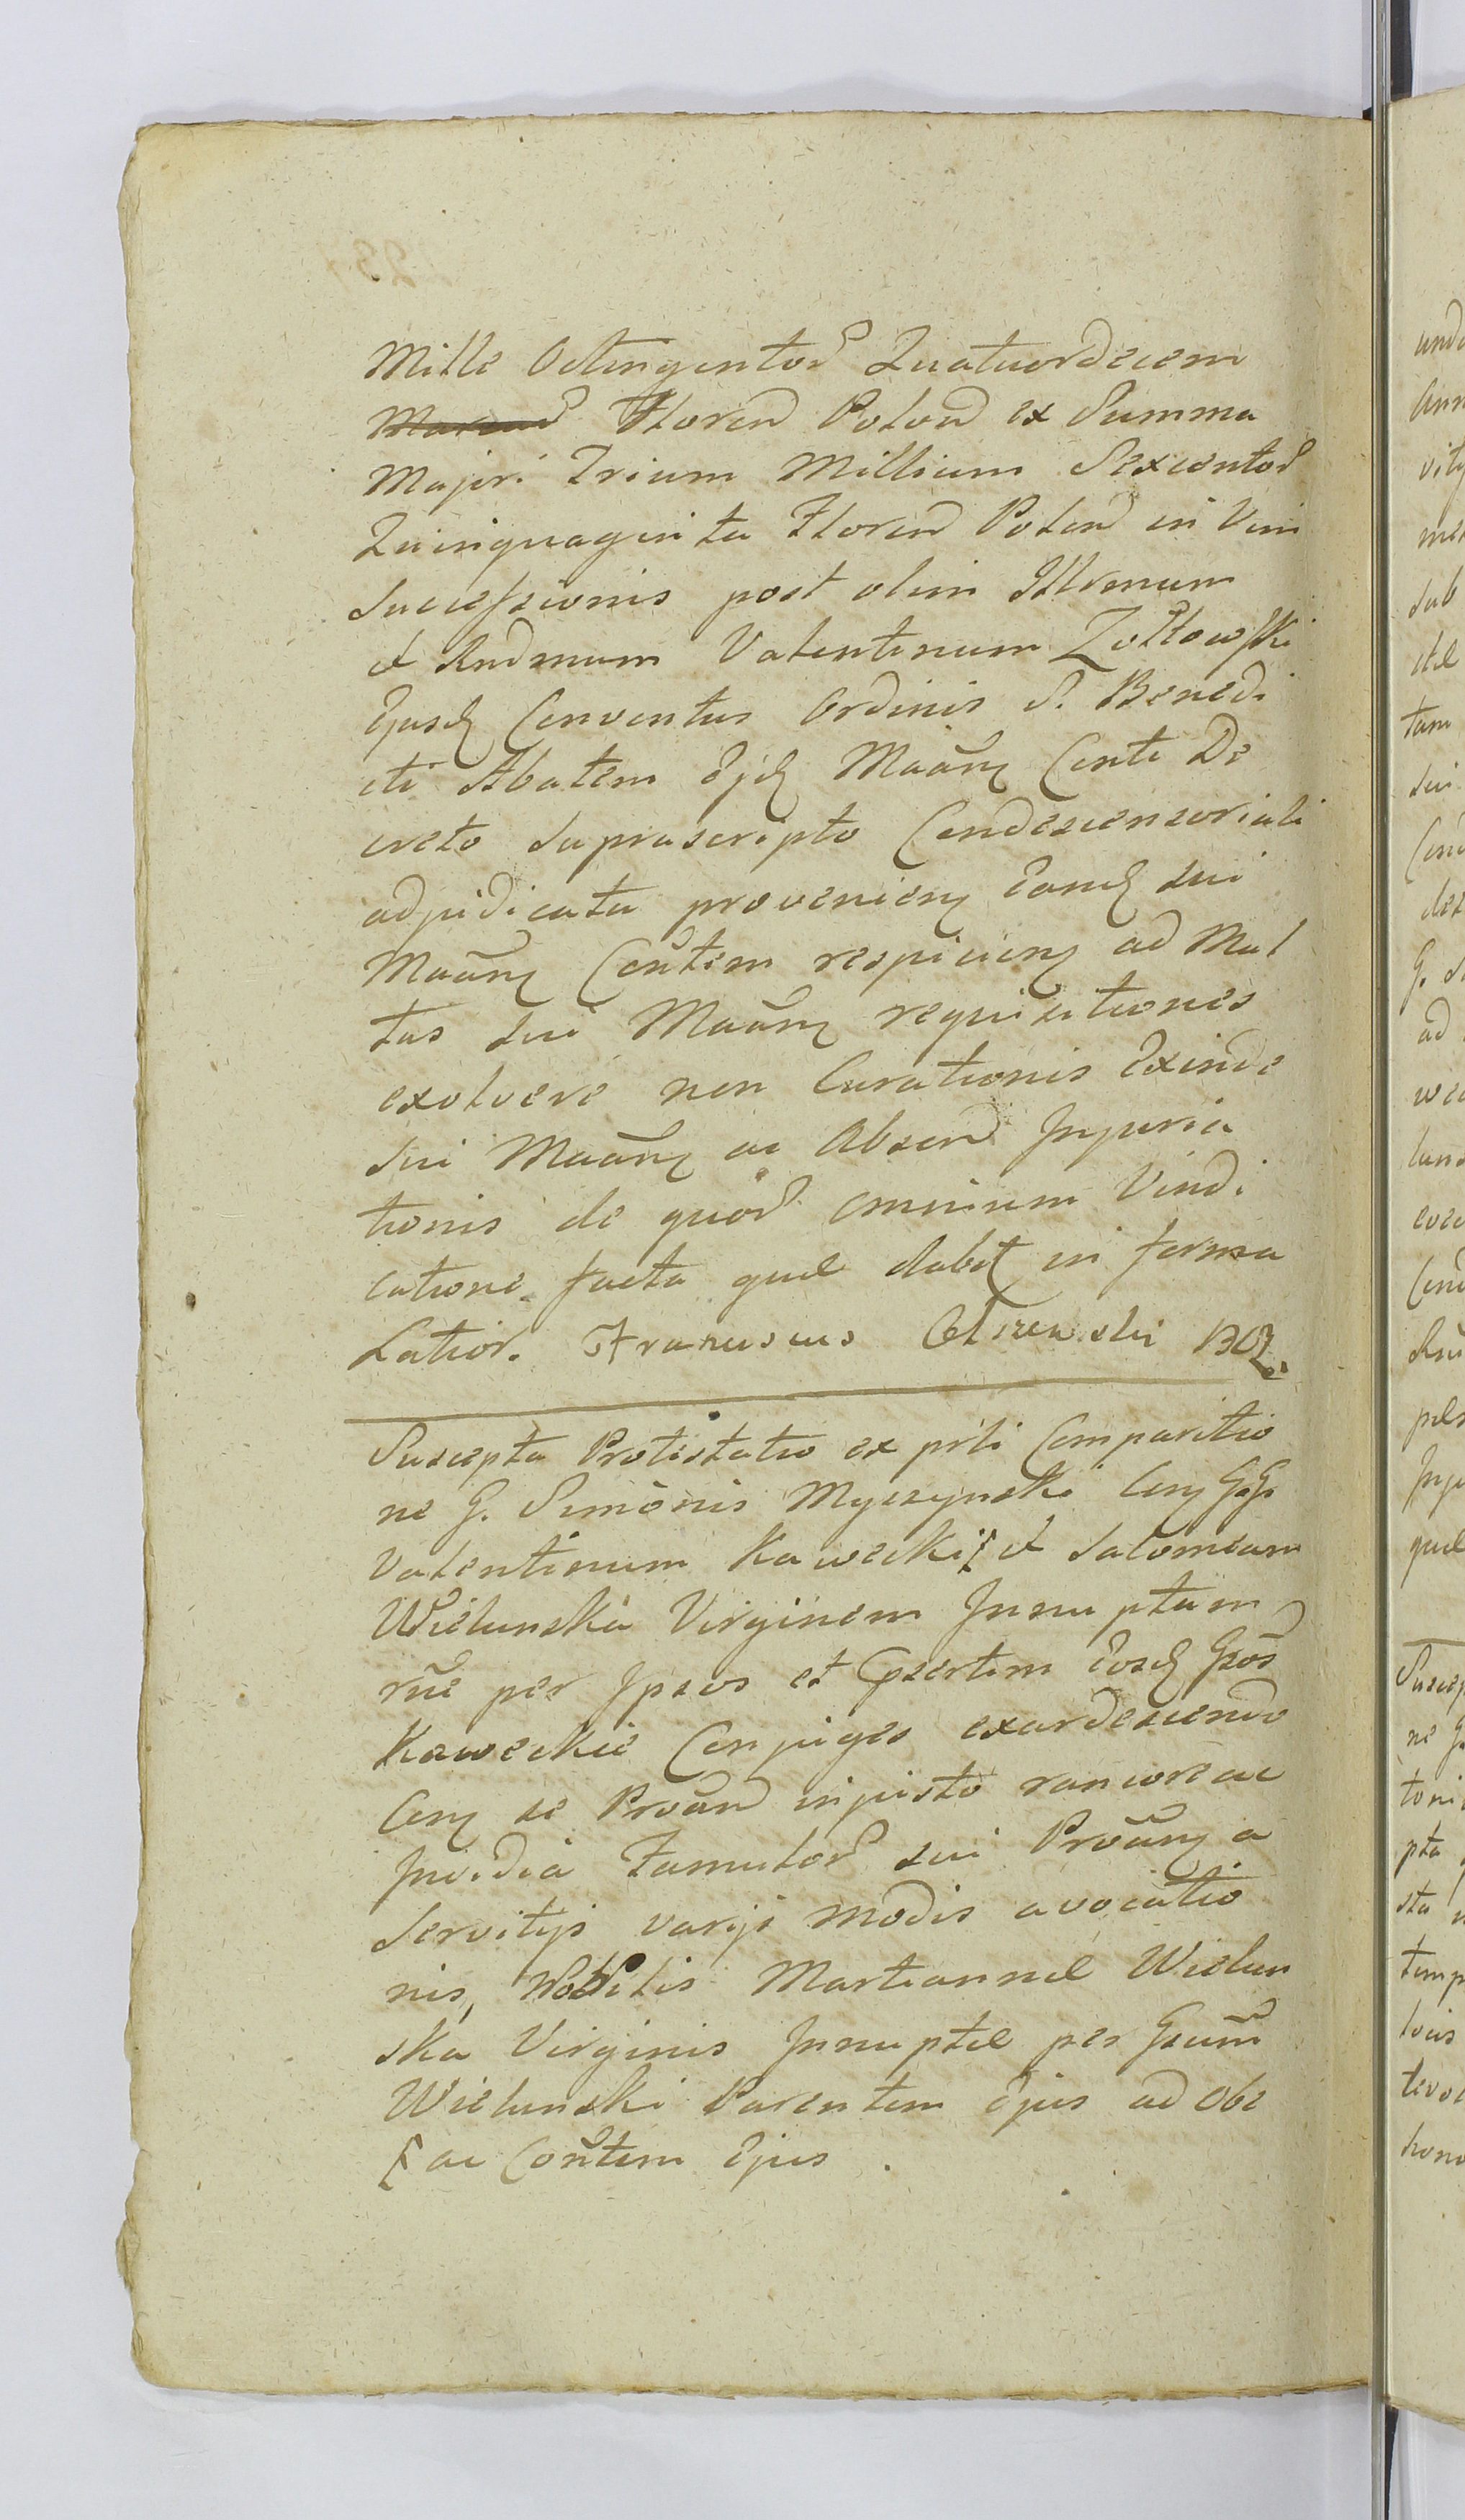 Mille Octingentor Quatuordecem
Floren Polon ex Summa
Majori Trium Millium Sexcentor
Quinquaginta Floren Polon in Vim
Successionis post olim Illrmum
et Rndmum Valentinum Zołtowski
Ejusd Conventus Ordinis S. Benedi
cti Abatem Ejd Maãn Conti De
creto Supruscripto Condescensoriali
adjudicata provenien eand sui
Maãn Coñtem respicien ad Mul
tas sui Maãn requisitiones
exolvere non Curationis Exinde
sui Maãn ac Absen Injuria
tionis de quor omnium Vindi
catione facta quæ dabit in forma
Latior. Franciscus
Suscepta Protestatio ex prti Comparitio
ne G. Simonis Myszynski Con GG
Valentinum Kawecki et Salomeam
Wielunska Virginem Innuptam
rñe per Ipsos et eosd Gsõs
Kaweckie Conjuges exardescendo
Con se Proãn injusto rancore ac
Invidia Famulor sui Proãn a
Servitijs varijs modis avocatio
nis, Nobilis Martiannæ Wielun
ska Virginis Innuptæ per Gsum
Wielunski Parentem Ejus ad obe
ac Coñtem Ejus .